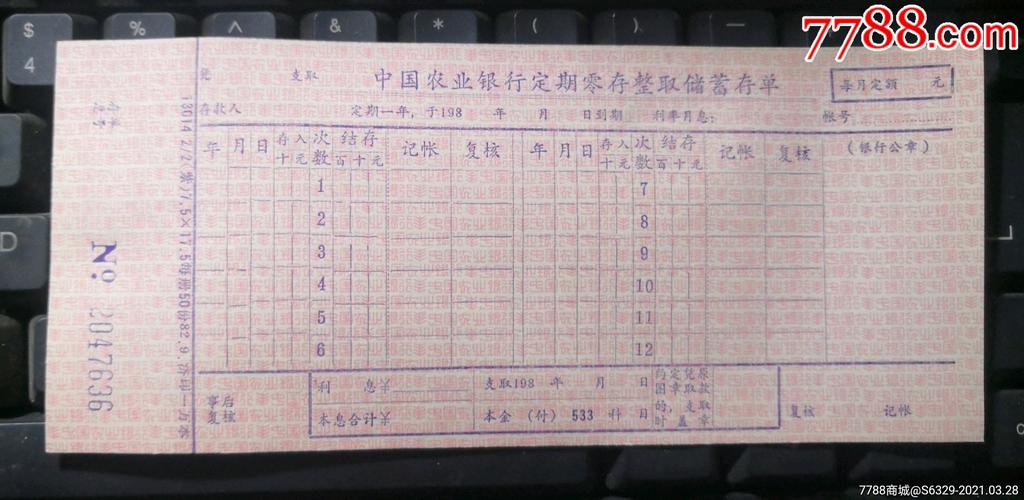 7788.com
中国农业银行定期零存整取储蓄存单
凭 支取
每月定额 元
存款人 定期一年，于198 年 月 日到期 利率月息： 帐号
年 月 日 存入 十元 次数 结存 百十元 记帐 复核 年 月 日 存入 十元 次数 结存 百十元 记帐 复核 （银行公章）
1 7
2 8
3 9
4 10
5 11
6 12
利 息￥ 支取198 年 月 日 约定凭原图章取款的，支取时盖章
本息合计￥ 本金 (付) 533 科 日
事后复核
复核 记帐
No 2047636
7788商城@S6329-2021.03.28
$ 4
%
&
*
(
)
D